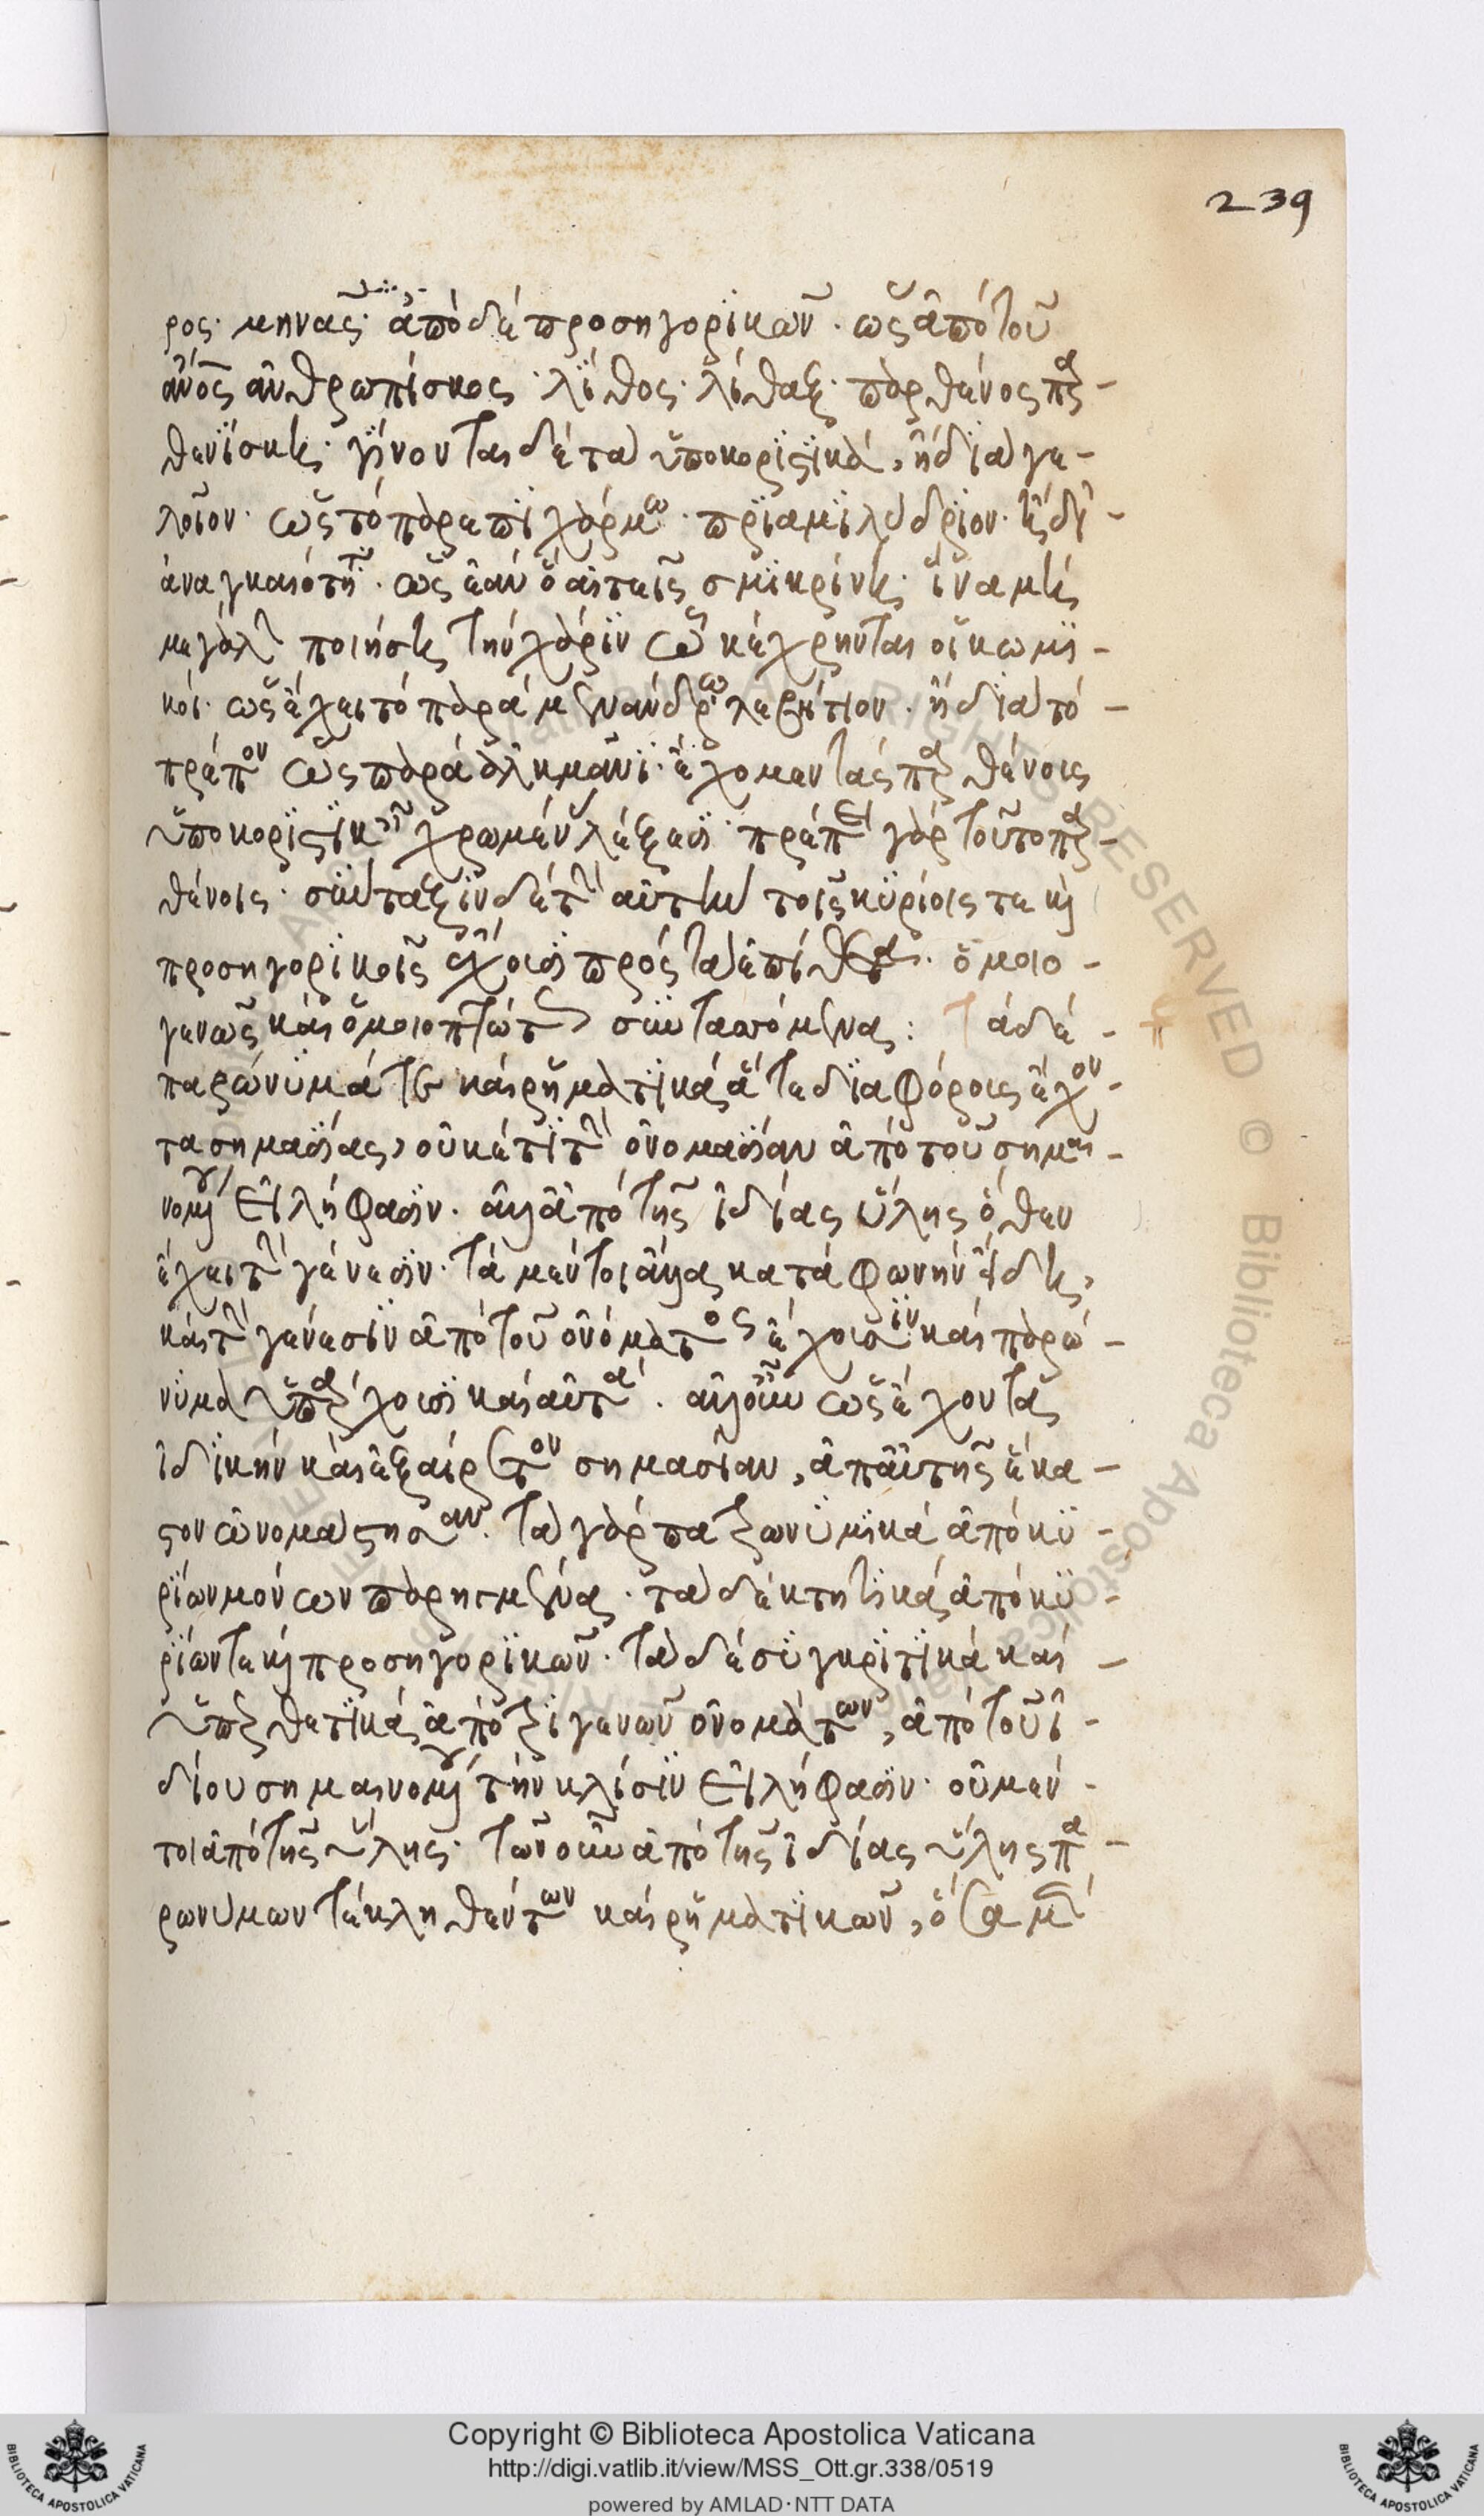 239
ρος· μηνᾶς· ἀπὸ δὲ προσηγορϊκῶν· ὡς ἀπὸ τοῦ
ἀνος ἀνθρωπίσκος· λίθος· λίθαξ· παρθένος παρ-
θενίσκη· γίνονται δὲ τὰ ὑποκοριστικὰ, ἢ διὰ γε-
λοῖον· ὡς τὸ παρ ἐπιχάρμω· πριαμιλύδριον· ἢ δι
ἀναγκαιότητ· ὡς ἐὰν ὁ αἰτεῖς σμικρίνης· ἵνα μὴ
μεγάλην ποιήσης τὴν χάριν ὧ κέχρηνται οἱ κωμι-
κοί· ὡς ἔχει τὸ παρὰ μενάνδρω λεβήτιον· ἢ διὰ τὸ
πρέπον ὡς παρὰ ἀλκμᾶνι· ἔχομεν τὰς παρθένοις
ὑποκοριστικαῖς χρωμένας λέξεσι· πρέπει γὰρ τοῦτο παρ-
θένοις· σύνταξιν δὲ τὴν αὐτὴν τοῖς κυρίοις τε καὶ
προσηγορικοῖς ἔχουσι πρὸς τὰ ἐπίθετα· ὁμοιο-
γενῶς καὶ ὁμοιοπτώτως συνταττόμενα: Τὰ δὲ
παρώνυμά τε καὶ ῥηματικὰ ἅτε διαφόρους ἔχον-
τα σημασίας, οὐκέτι τὴν ὀνομασίαν ἀπὸ τοῦ σημαι-
νομένου εἰλήφασιν· ἀλλ ἀπὸ τῆς ἰδίας ὕλης ὅθεν
ἔχει τὴν γένεσιν· τὰ μέντοι ἄλλα κατὰ φωνὴν εἴδη,
καὶ τὴν γένεσιν ἀπὸ τοῦ ὀνόματος ἔχουσιν καὶ παρώ-
νυμα ὑπάρχουσι καὶ αὐτά· ἀλλ οὖν ὡς ἔχοντα
ἰδικὴν καὶ ἐξαίρετον σημασίαν, ἀπ αὐτῆς ἕκα-
στον ὠνομάσθησαν. τὰ γὰρ πατρωνυμικὰ ἀπὸ κυ-
ρίων μόνων παρηγμένα· τὰ δὲ κτητικὰ ἀπὸ κυ-
ρίων τε καὶ προσηγορικῶν· τὰ δὲ συγκριτικὰ καὶ
ὑπερθετικὰ ἀπὸ τριγενῶν ὀνομάτων, ἀπὸ τοῦ ἰ-
δίου σημαινομένου τὴν κλίσιν εἰλήφασιν· οὐ μέν-
τοι ἀπὸ τῆς ὕλης· τῶν οὖν ἀπὸ τῆς ἰδίας ὕλης πα-
ρωνύμων τε κληθέντων καὶ ῥηματικῶν, ὅσα μὲν
Copyright © Biblioteca Apostolica Vaticana
http://digi.vatlib.it/view/MSS_Ott.gr.338/0519
powered by AMLAD·NTT DATA